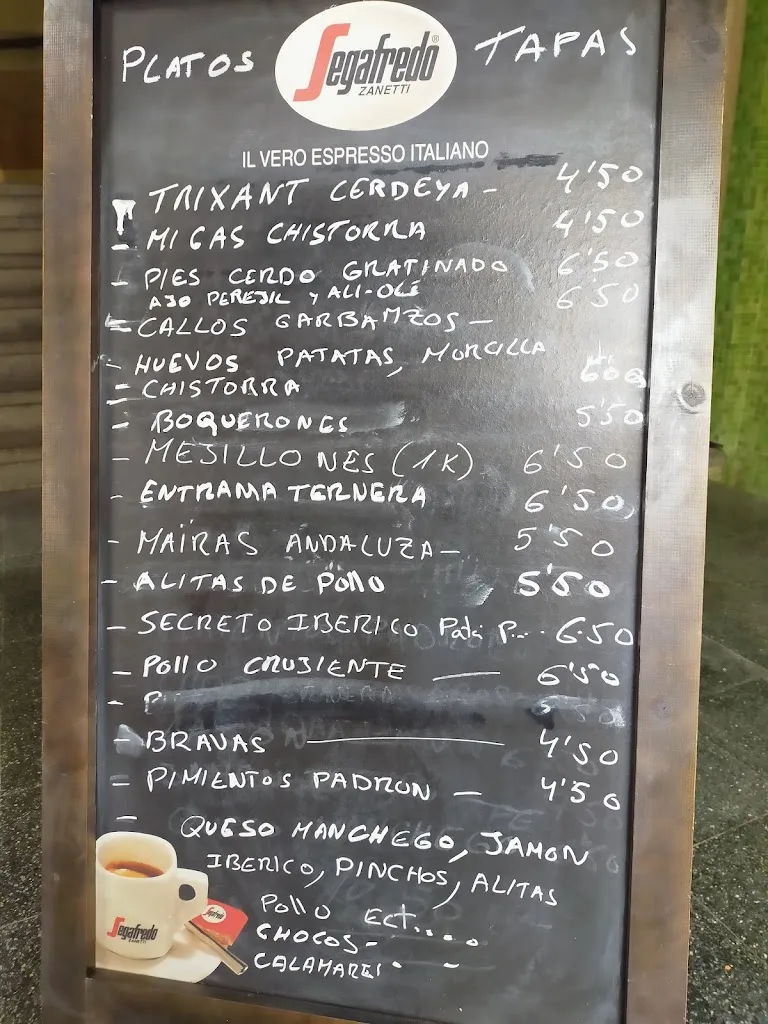 PLATOS Segafredo® TAPAS
ZANETTI
IL VERO ESPRESSO ITALIANO
TRIXANT CERDEYA - 4'50
- MIGAS CHISTORRA 4'50
- PIES CERDO GRATINADO 6'50
AJO PEREJIL Y ALI-OLÉ 6'50
- CALLOS GARBANZOS -
- HUEVOS PATATAS, MORCILLA
- CHISTORRA
- BOQUERONES 5'50
- MEJILLONES (1K) 6'50
- ENTRAMA TERNERA 6'50
- MAIRAS ANDALUZA - 5'50
- ALITAS DE POllO 5'50
- SECRETO IBERICO P... 6.50
- POllO CRUJIENTE — 6'50
- BRAVAS — 4'50
- PIMIENTOS PADRON - 4'50
- QUESO MANCHEGO, JAMON
IBERICO, PINCHOS, ALITAS
POllO ECT....
CHOCOS -
CALAMARES -
Segafredo
ZANETTI
Segafredo